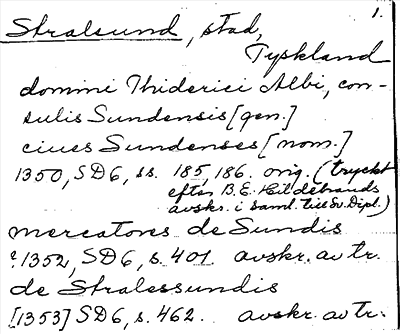 1.
Stralsund, stad,
Tyskland
domini Thiderici Albi, con-
sulis Sundensis [gen.]
ciues Sundenses [nom.]
1350, SD6, ss. 185, 186. orig. (tryckt
efter B.E. Hildebrands
avskr. i saml. till Sv. Dipl.)
mercatores de Sundis
?1352, SD6, s. 401. avskr. av tr.
de Stralessundis
[1353] SD6, s. 462. avskr. av tr.